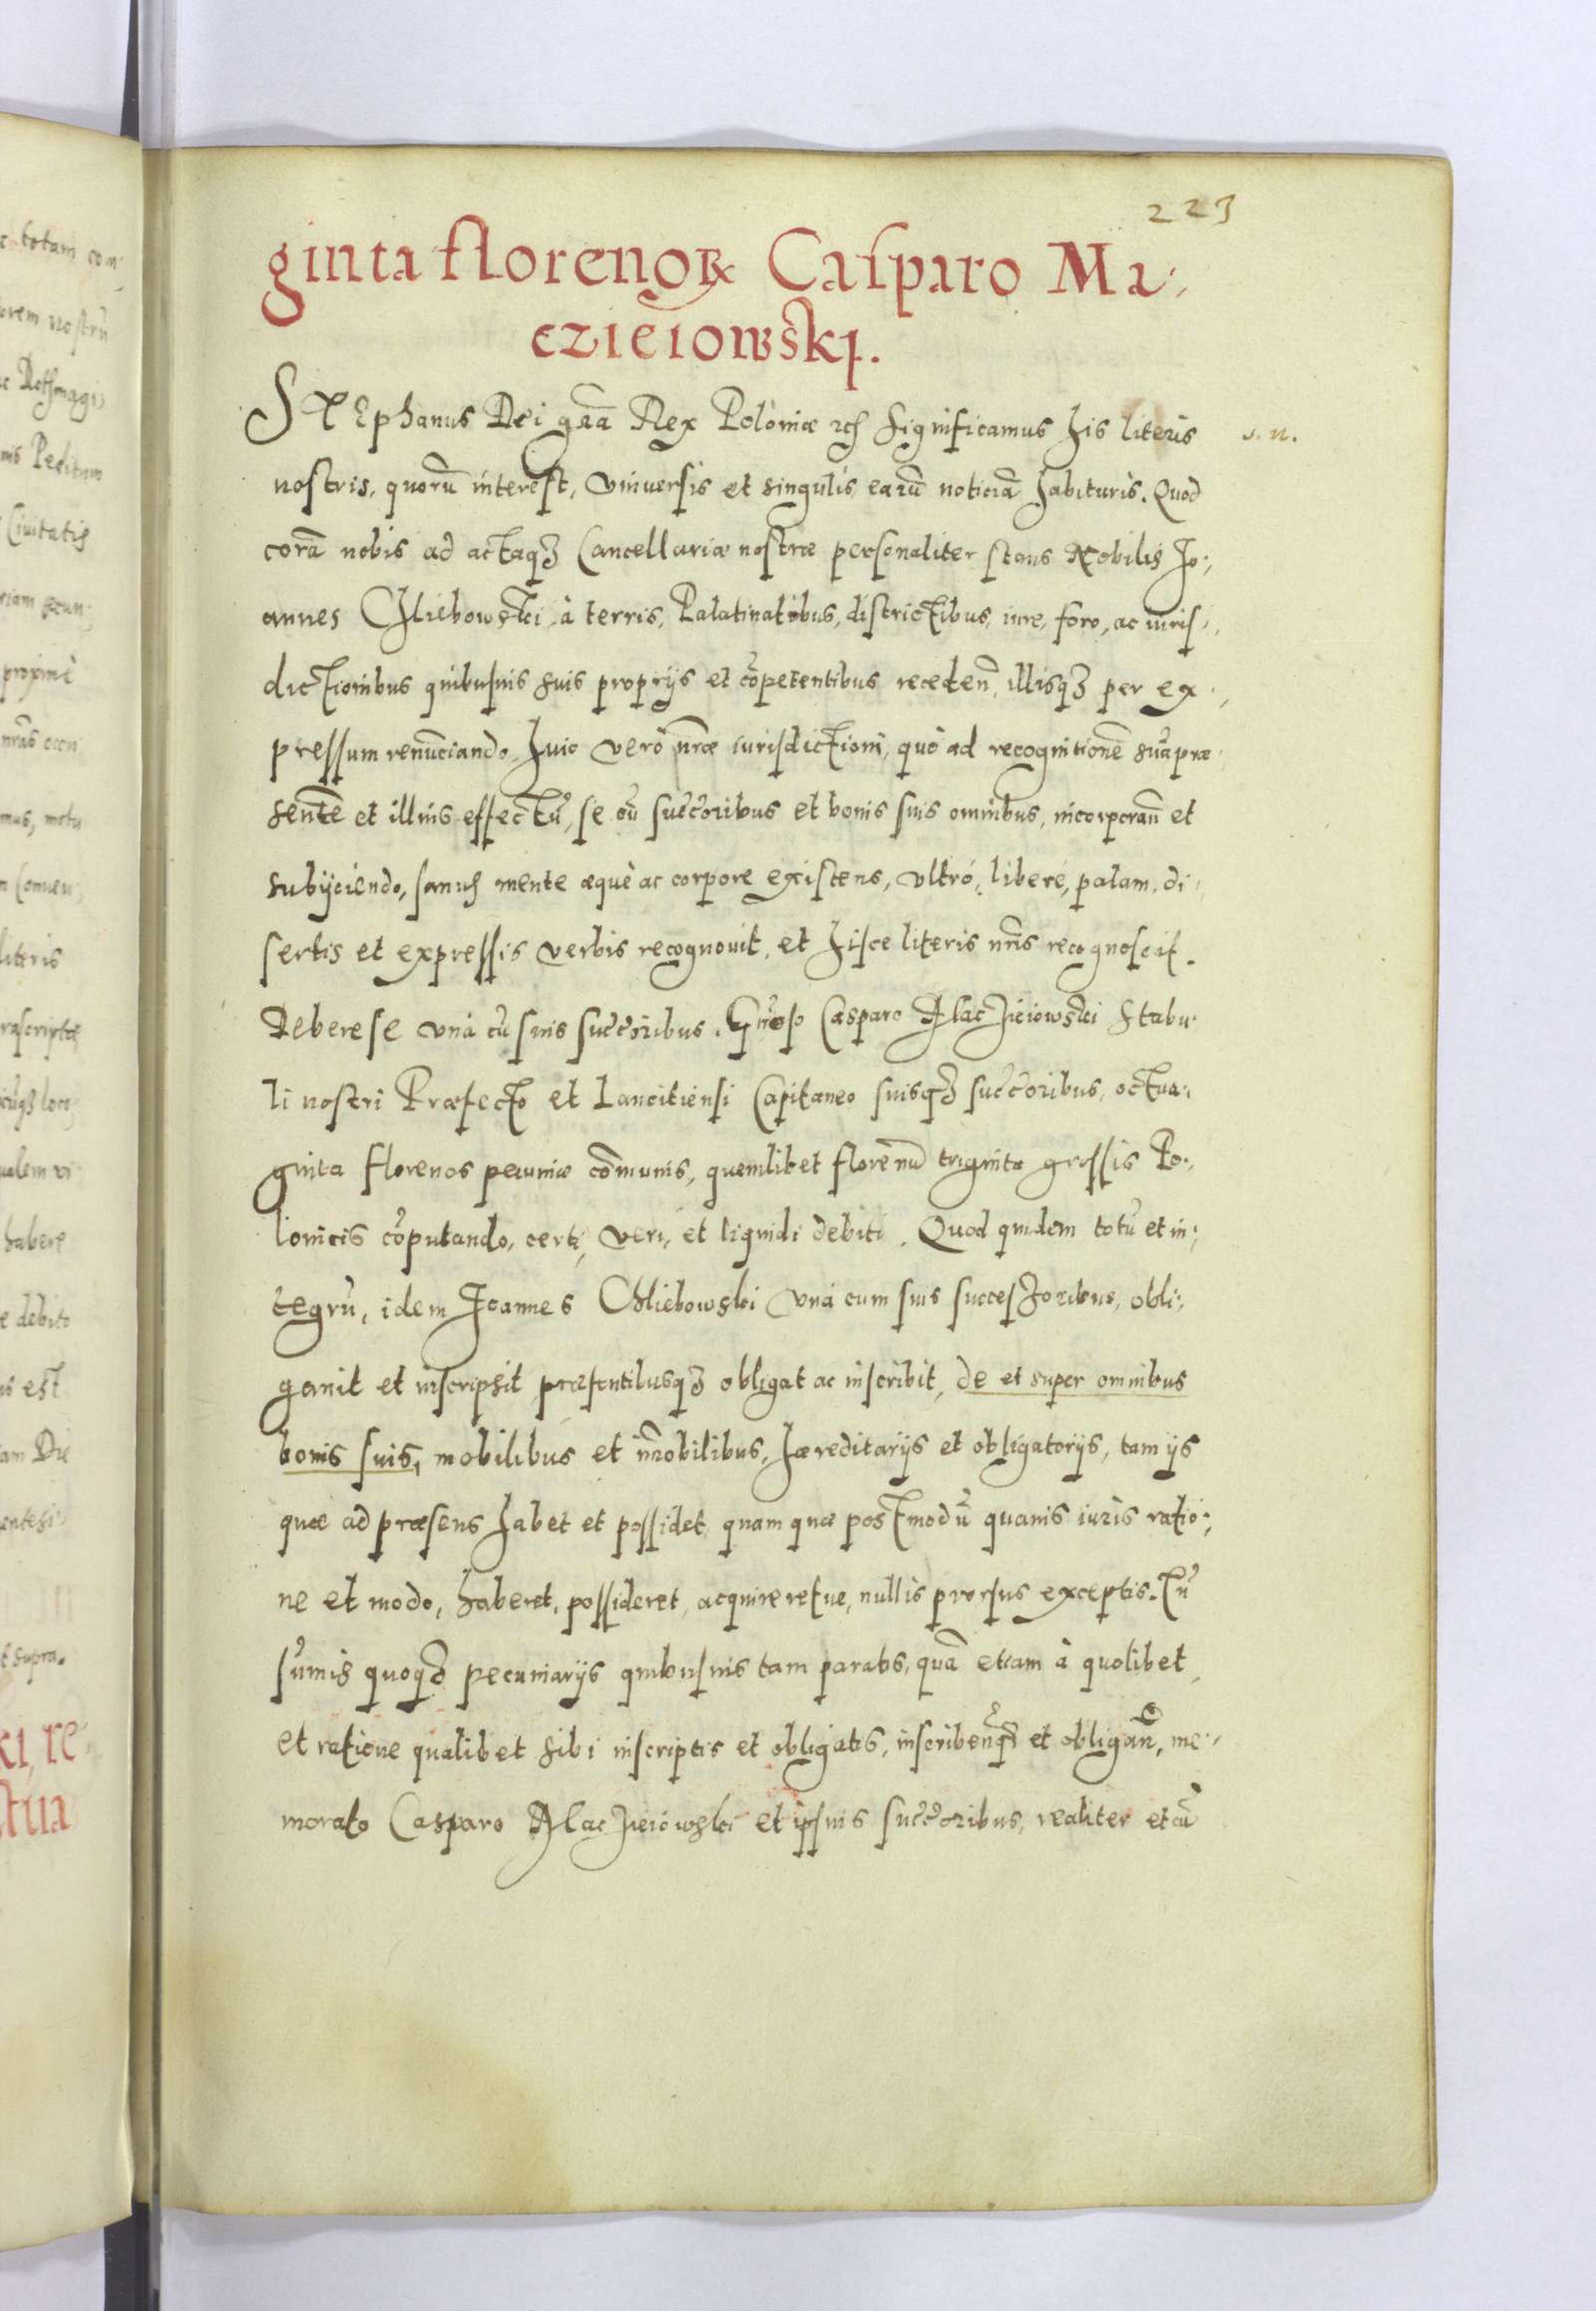 223
ginta florenoꝝ Casparo Ma-
czieiowski.
STEphanus Dei grã Rex Poloniæ etc. Significamus his literis
nostris, quorũ interest, vniuersis et singulis earũ noticiã habituris. Quod
corã nobis ad actaqꝫ Cancellariæ nostræ personaliter stans Nobilis Jo-
annes Chliebowski, à terris, Palatinatibus, districtibus, iure, foro, ac iuris-
dictionibus quibusuis suis proprijs et cõpetentibus recedeñ, illisqꝫ per ex-
pressum renunciando, huic verò nr̃æ iurisdictioni, quò ad recognitionẽ suã præ-
sentẽ et illius effectũ, se cũ succ̃oribus et bonis suis omnibus, incorporañ et
subijciendo, sanus mente æquè ac corpore existens, vltrò, liberè, palam, di-
sertis et expressis verbis recognouit, et hisce literis nr̃is recognoscit.
Debere se vnà cũ suis succ̃oribus. Gñoso Casparo Maczieiowski Stabu-
li nostri Præfecto et Lanciciensi Capitaneo suisqꝫ succ̃oribus, octua-
ginta florenos pecuniæ cõmunis, quemlibet florenũ triginta grossis Po-
lonicis cõputando, certi, veri, et liquidi debiti. Quod quidem totũ et in-
tegrũ, idem Joannes Chliebowski vnà cum suis successoribus, obli-
gauit et inscripsit præsentibusqꝫ obligat ac inscribit, de et super omnibus
bonis suis, mobilibus et im̃obilibus, hæreditarijs et obligatorijs, tam ijs
quæ ad præsens habet et possidet, quam quæ postmodũ quauis iuris ratio-
ne et modo, haberet, possideret, acquireretue, nullis prorsus exceptis. Tũ
sum̃is quoqꝫ pecuniarijs quibusuis tam paratis, quã etiam à quolibet,
et ratione qualibet sibi inscriptis et obligatis, inscribenđ et obligañ, me-
morato Casparo Maczieiowski et ipsius succ̃oribus, realiter et cũ